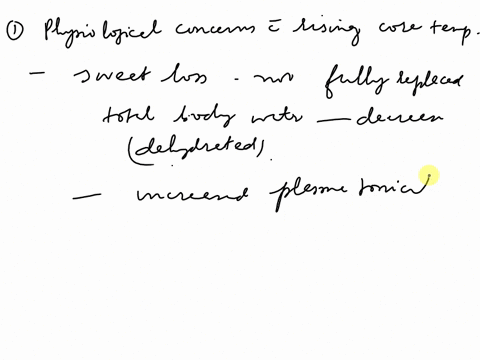 ① Physiological concerns c̄ rising core temp.
- sweet loss . not fully replaced
total body water — decrease
(dehydrated).
— increased plasma tonici